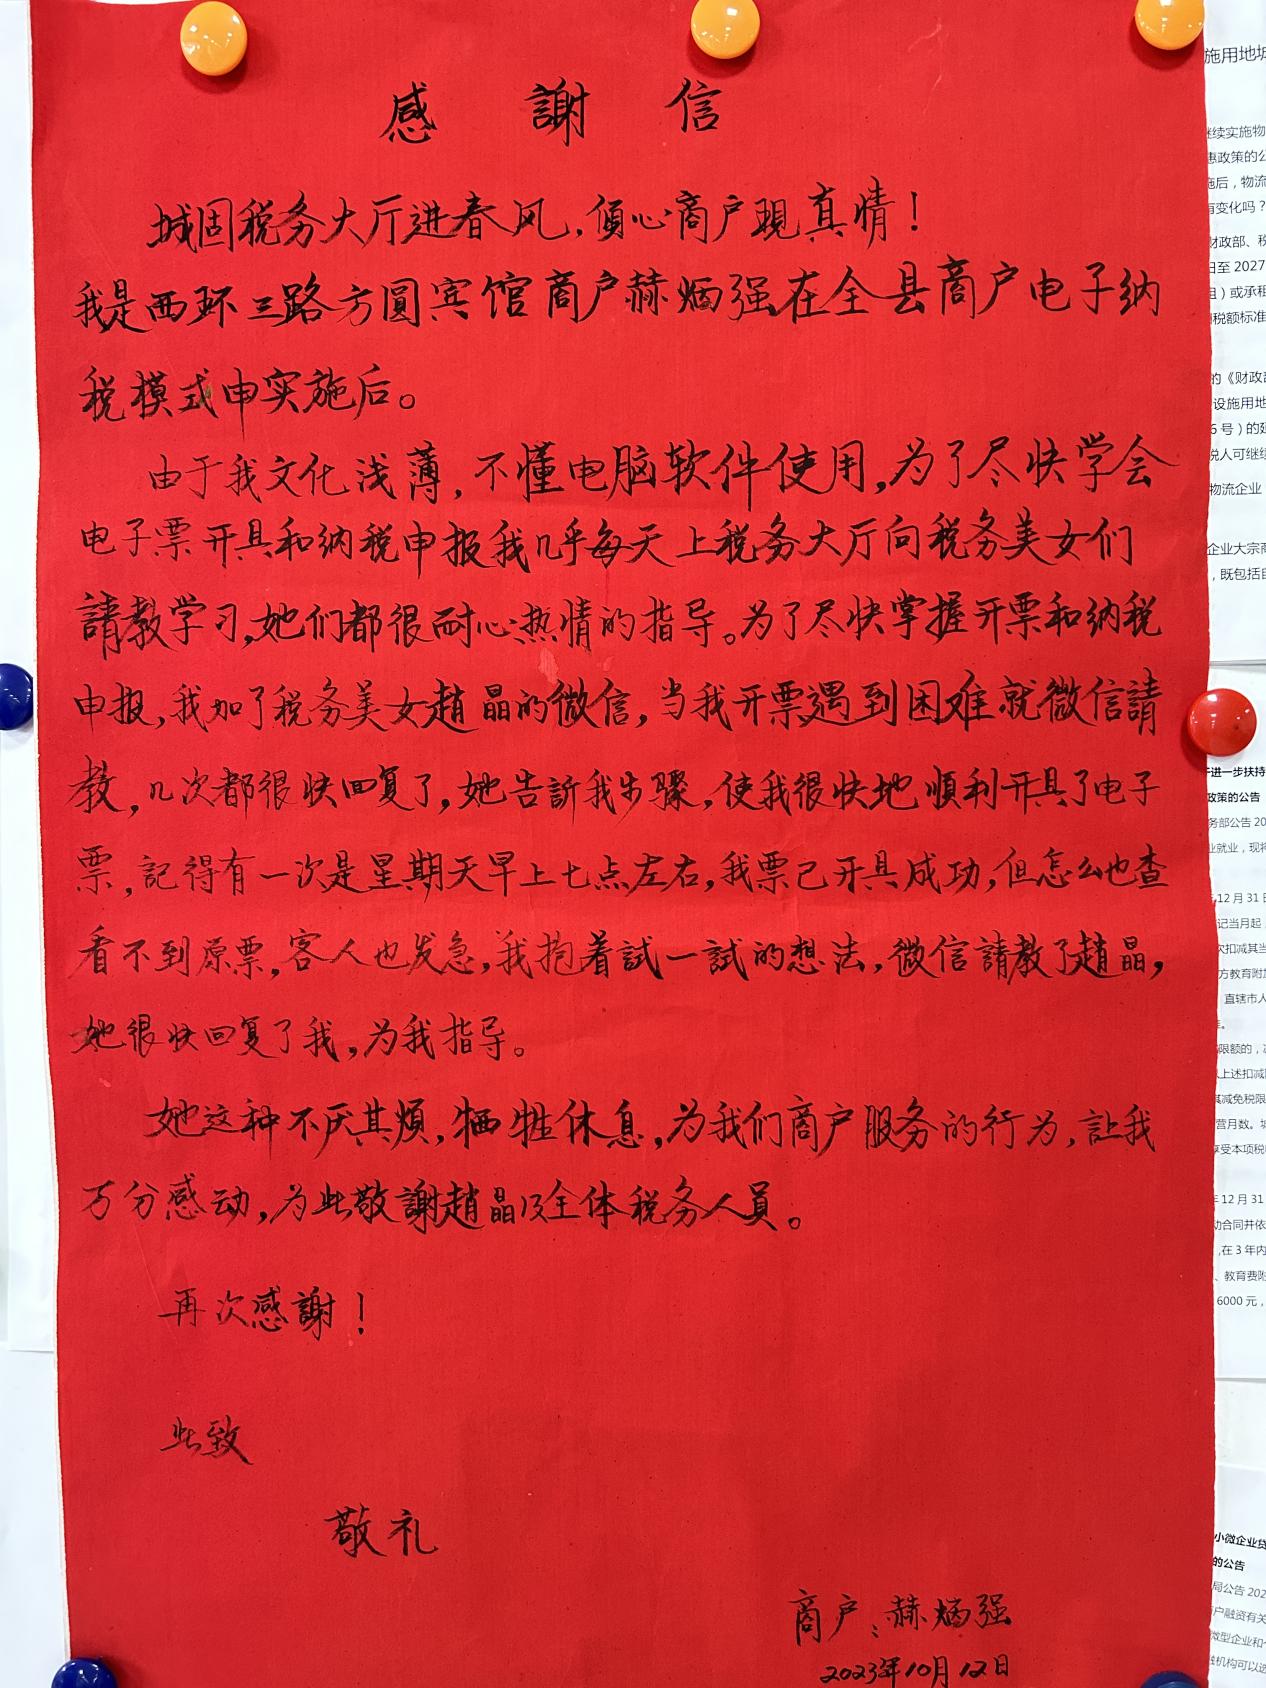 感謝信
城固税务大厅进春风，傾心商户現真情！
我是西环三路方圆宾馆商户赫炳强在全县商户电子纳
税模式申实施后。
由于我文化浅薄，不懂电脑软件使用，为了尽快学会
电子票开具和纳税申报我几乎每天上税务大厅向税务美女们
請教学习，她们都很耐心热情的指导。为了尽快掌握开票和纳税
申报，我加了税务美女趙晶的微信，当我开票遇到困难就微信請
教，几次都很快回复了，她告訴我步驟，使我很快地順利开具了电子
票，記得有一次是星期天早上七点左右，我票已开具成功，但怎么也查
看不到原票，客人也发急，我抱着試一試的想法，微信請教了趙晶，
她很快回复了我，为我指导。
她这种不厌其煩，牺牲休息，为我们商户服务的行为，讓我
万分感动，为此敬謝趙晶及全体税务人員。
再次感謝！
此致
敬礼
商户：赫炳强
2023年10月12日
施用地城
继续实施物
惠政策的公
施后，物流
有变化吗？
财政部、税
日至2027
租）或承租
税额标准
的《财政部
设施用地
6号）的建
税人可继续
物流企业
企业大宗商
，既包括自
进一步扶持
政策的公告
务部公告20
业就业，现将
12月31日
记当月起，
次扣减其当
方教育附加
直辖市人
限额的，减
以上述扣减
其减免税限
营月数。城
享受本项税
12月31
动合同并依
在3年内
、教育费附
6000元，
小微企业贷
的公告
局公告202
户融资有关
微型企业和
融机构可以选